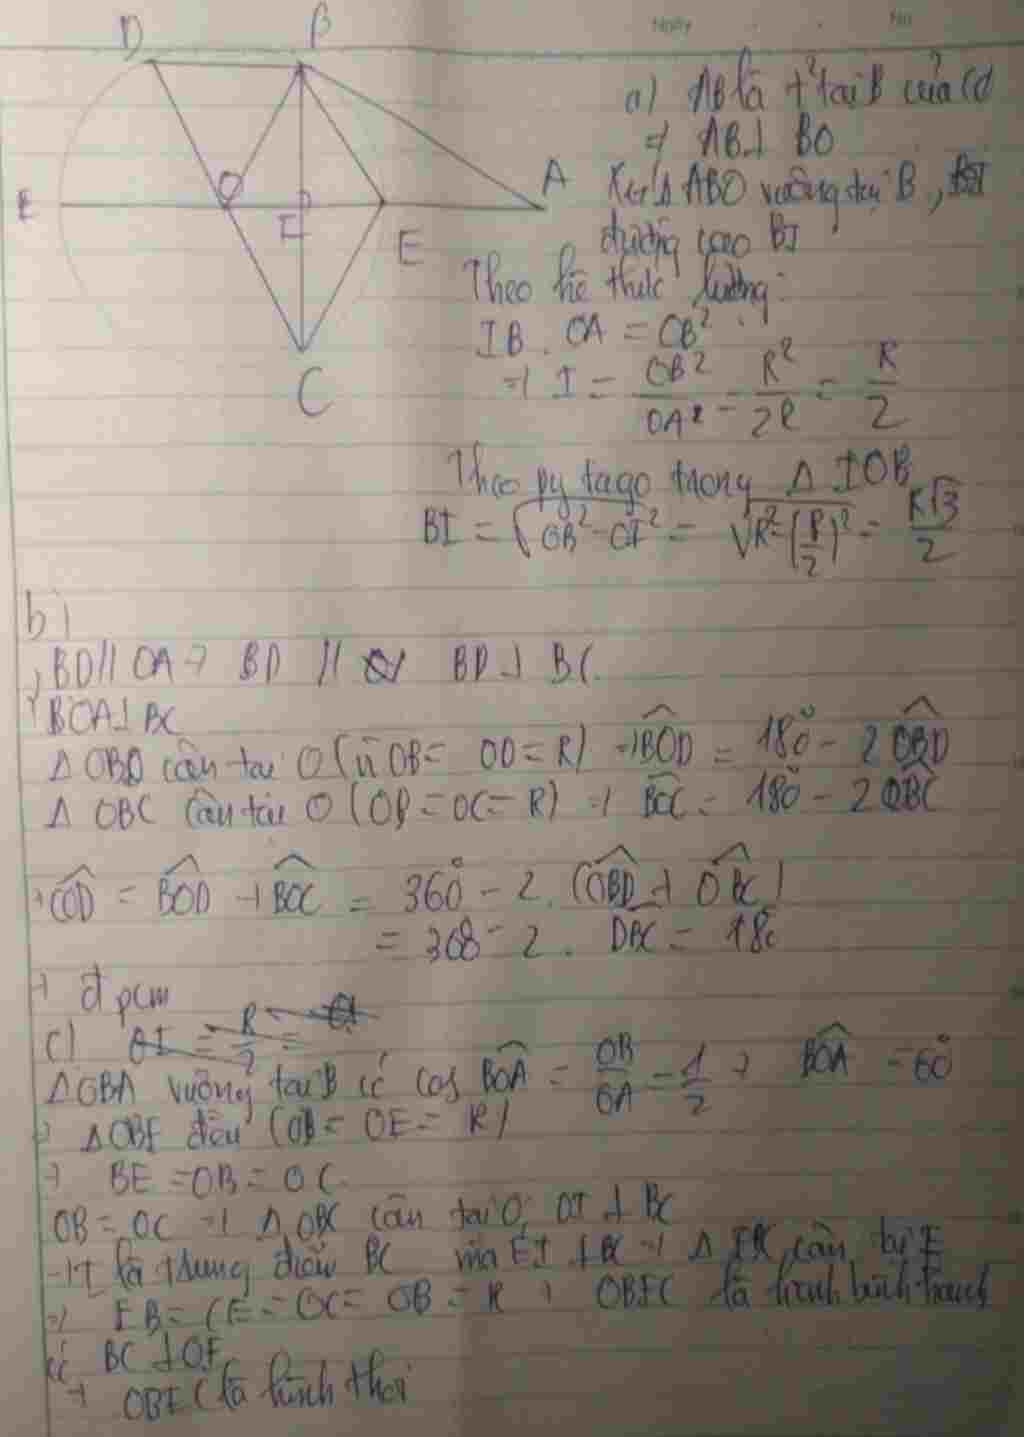 Ngày No
D B
O A
I E
C
a) AB là t² tại B của (O
=> AB⊥ BO
Xét Δ ABO vuông tại B,
đường cao BI
Theo hệ thức lượng:
IB . OA = OB²
=> I = OB²/OA² = R²/2R = R/2
Theo py tago trong Δ IOB
BI = √OB² - OI² = √R² - (R/2)² = R√3/2
b)
BD // OA → BD // BD ⊥ BC.
BOA ⊥ BC
Δ OBD cân tại O (vì OB = OD = R) => BOD = 180° - 2 OBD
Δ OBC cân tại O (OB = OC = R) => BOC = 180 - 2 OBC
→ COD = BOD + BOC = 360° - 2. (OBD + OBC)
= 360 - 2. DBC = 180
→ đpcm
c) OI = R/2 =
Δ OBA vuông tại B có cos BOA = OB/OA = 1/2 → BOA = 60°
Δ OBE đều (OB = OE = R)
→ BE = OB = OC.
OB = OC => Δ OBC cân tại O, OI ⊥ BC
→ I là trung điểm BC mà EI ⊥ BC => Δ EBC cân tại E
=> EB = CE = OC = OB = R → OBEC là hình bình hành
có BC ⊥ OE
→ OBEC là hình thoi